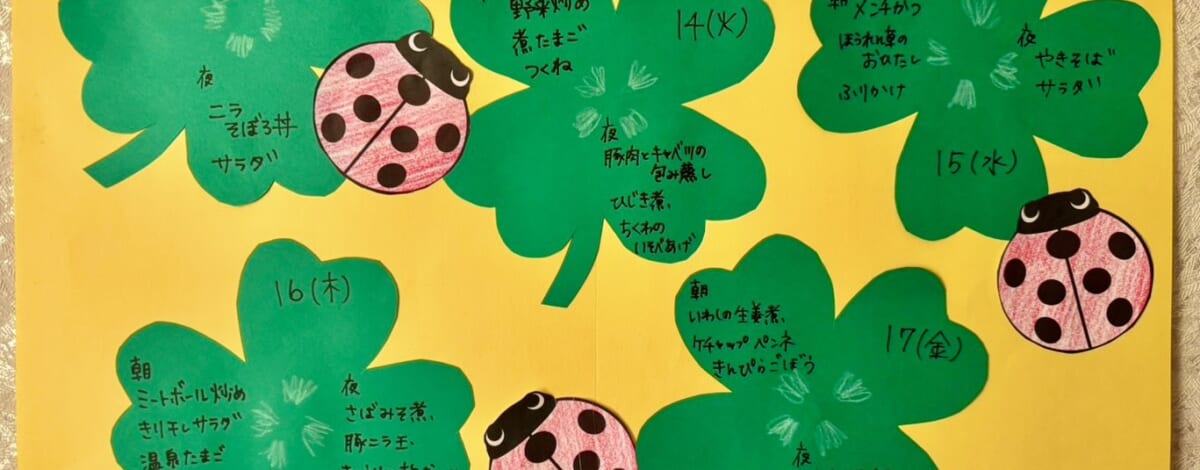 夜
ニラ
そぼろ丼
サラダ
野菜炒め
煮たまご
つくね
14(火)
夜
豚肉とキャベツの
包み蒸し
ひじき煮、
ちくわの
いそべあげ
朝
メンチかつ
ほうれん草の
おひたし
ふりかけ
夜
やきそば
サラダ
15(水)
16(木)
朝
ミートボール炒め
きり干しサラダ
温泉たまご
夜
さばみそ煮、
豚ニラ玉、
朝
いわしの生姜煮、
ケチャップペンネ
きんぴらごぼう
17(金)
夜